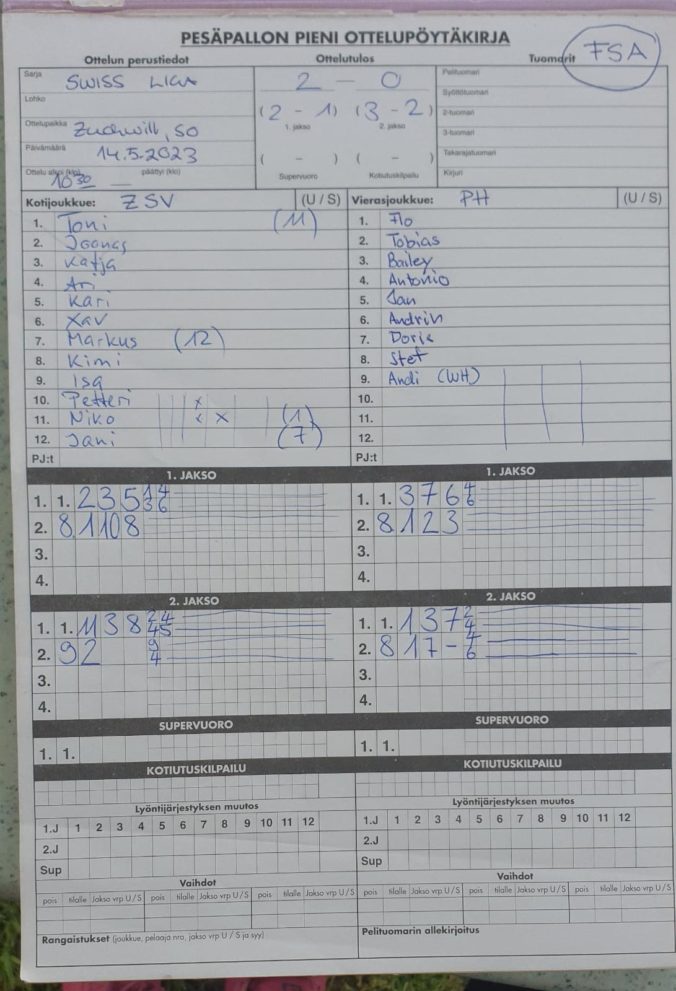 PESÄPALLON PIENI OTTELUPÖYTÄKIRJA
Ottelun perustiedot Ottelutulos Tuomarit FSA
Sarja SWISS LIGA
Lohko
Ottelupaikka Zuchwill, SO
Päivämäärä 14.5.2023
Ottelu alkoi (klo) 10 30 päättyi (klo)
2 – 0
(2 - 1) (3 - 2)
1. jakso 2. jakso
( - ) ( - )
Supervuoro Kotiutuskilpailu
Pelituomari
Syöttötuomari
2-tuomari
3-tuomari
Takarajatuomari
Kirjuri
Kotijoukkue: ZSV (U / S) Vierasjoukkue: PH (U / S)
1. Toni (11) 1. Flo
2. Joonas 2. Tobias
3. Katja 3. Bailey
4. Ari 4. Antonio
5. Kari 5. Jan
6. Xav 6. Andrin
7. Markus (12) 7. Doris
8. Kimi 8. Stef
9. Isa 9. Andi (WH)
10. Petteri x 10.
11. Niko x x (1) 11.
12. Jani (7) 12.
PJ:t PJ:t
1. JAKSO 1. JAKSO
1. 1. 2 3 5 1. 1. 3 7 6 4 6
2. 8 1 1 0 8 2. 8 1 2 3
3. 3.
4. 4.
2. JAKSO 2. JAKSO
1. 1. 11 3 8 2 4 4 5 1. 1. 1 3 7 2 4
2. 9 2 9 4 2. 8 1 7 – 4 6
3. 3.
4. 4.
SUPERVUORO SUPERVUORO
1. 1. 1. 1.
KOTIUTUSKILPAILU KOTIUTUSKILPAILU
Lyöntijärjestyksen muutos Lyöntijärjestyksen muutos
1.J 1 2 3 4 5 6 7 8 9 10 11 12 1.J 1 2 3 4 5 6 7 8 9 10 11 12
2.J 2.J
Sup Sup
Vaihdot Vaihdot
pois tilalle Jakso vrp U / S pois tilalle Jakso vrp U / S pois tilalle Jakso vrp U / S pois tilalle Jakso vrp U / S pois tilalle Jakso vrp U / S pois tilalle Jakso vrp U / S
Rangaistukset (joukkue, pelaaja nro, jakso vrp U / S ja syy) Pelituomarin allekirjoitus